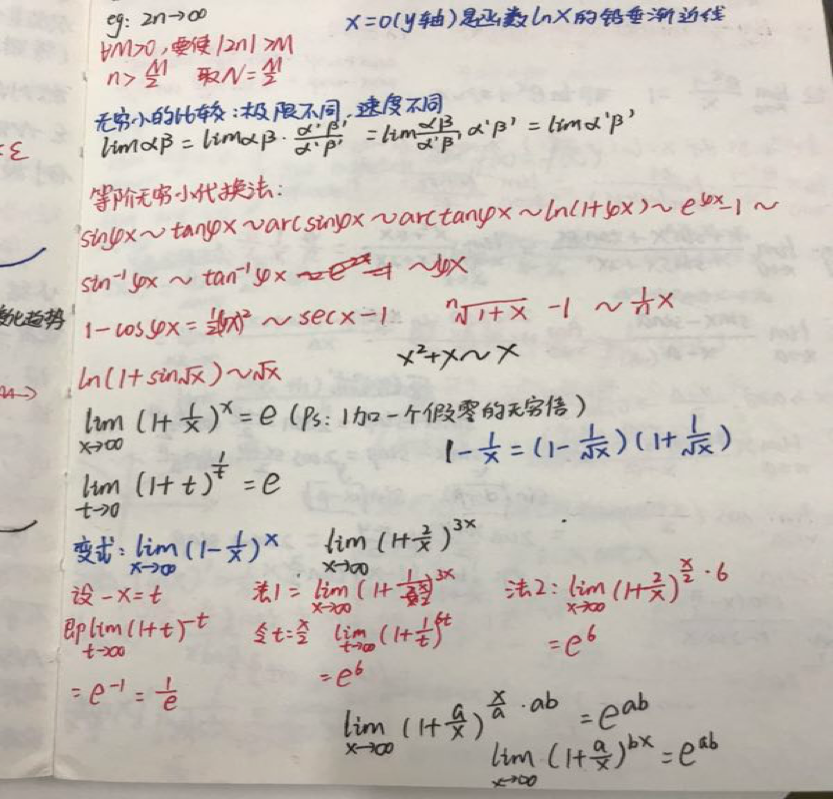 eg: 2n→∞
x=0(y轴)是函数lnx的铅垂渐近线
∀M>0,要使|2n|>M
n>M/2 取N=M/2
无穷小的比较:极限不同,速度不同
limαβ = limαβ·α'β'/α'β' = lim αβ/α'β' α'β' = limα'β'
ε
等阶无穷小代换法:
sinφx~tanφx~arcsinφx~arctanφx~ln(1+φx)~e^φx-1~
sin⁻¹φx ~ tan⁻¹φx ~φx
化趋势
1-cosφx=½(φx)² ~ secx-1
ⁿ√(1+x) -1 ~ 1/n x
x²+x~x
ln(1+sin√x)~√x
lim x→∞ (1+1/x)^x = e (Ps: 1加一个假零的无穷倍)
1-1/x=(1-1/√x)(1+1/√x)
lim t→0 (1+t)^(1/t) = e
变式: lim x→∞ (1-1/x)^x
lim x→∞ (1+2/x)^3x
设-x=t
法1= lim x→∞ (1+1/(x/2))^3x
法2: lim x→∞ (1+2/x)^(x/2·6)
即lim t→∞ (1+t)^-t
令t=x/2 lim t→∞ (1+1/t)^6t
=e⁶
= e⁻¹ = 1/e
=e⁶
lim x→∞ (1+a/x)^(x/a·ab) = e^ab
lim x→∞ (1+a/x)^bx = e^ab